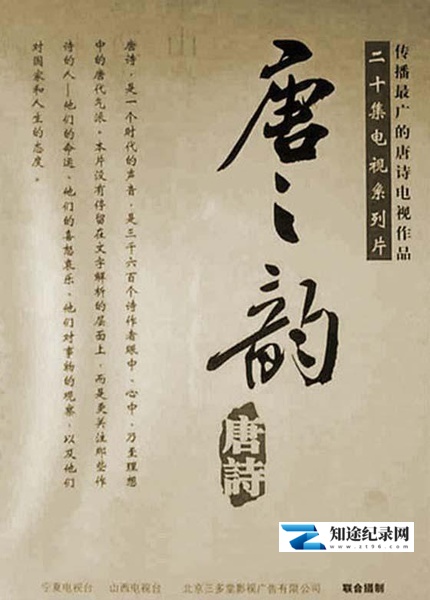 传播最广的唐诗电视作品
二十集电视系列片
唐之韵
唐詩
唐诗，是一个时代的声音，是三千六百个诗作者眼中、心中、乃至理想
中的唐代气派。本片没有停留在文字解析的层面上，而是更关注那些作
诗的人——他们的命运、他们的喜怒哀乐、他们对事物的观察，以及他们
对国家和人生的态度。
宁夏电视台 山西电视台 北京三多堂影视广告有限公司 联合攝制
知途纪录网
www.zt96.com